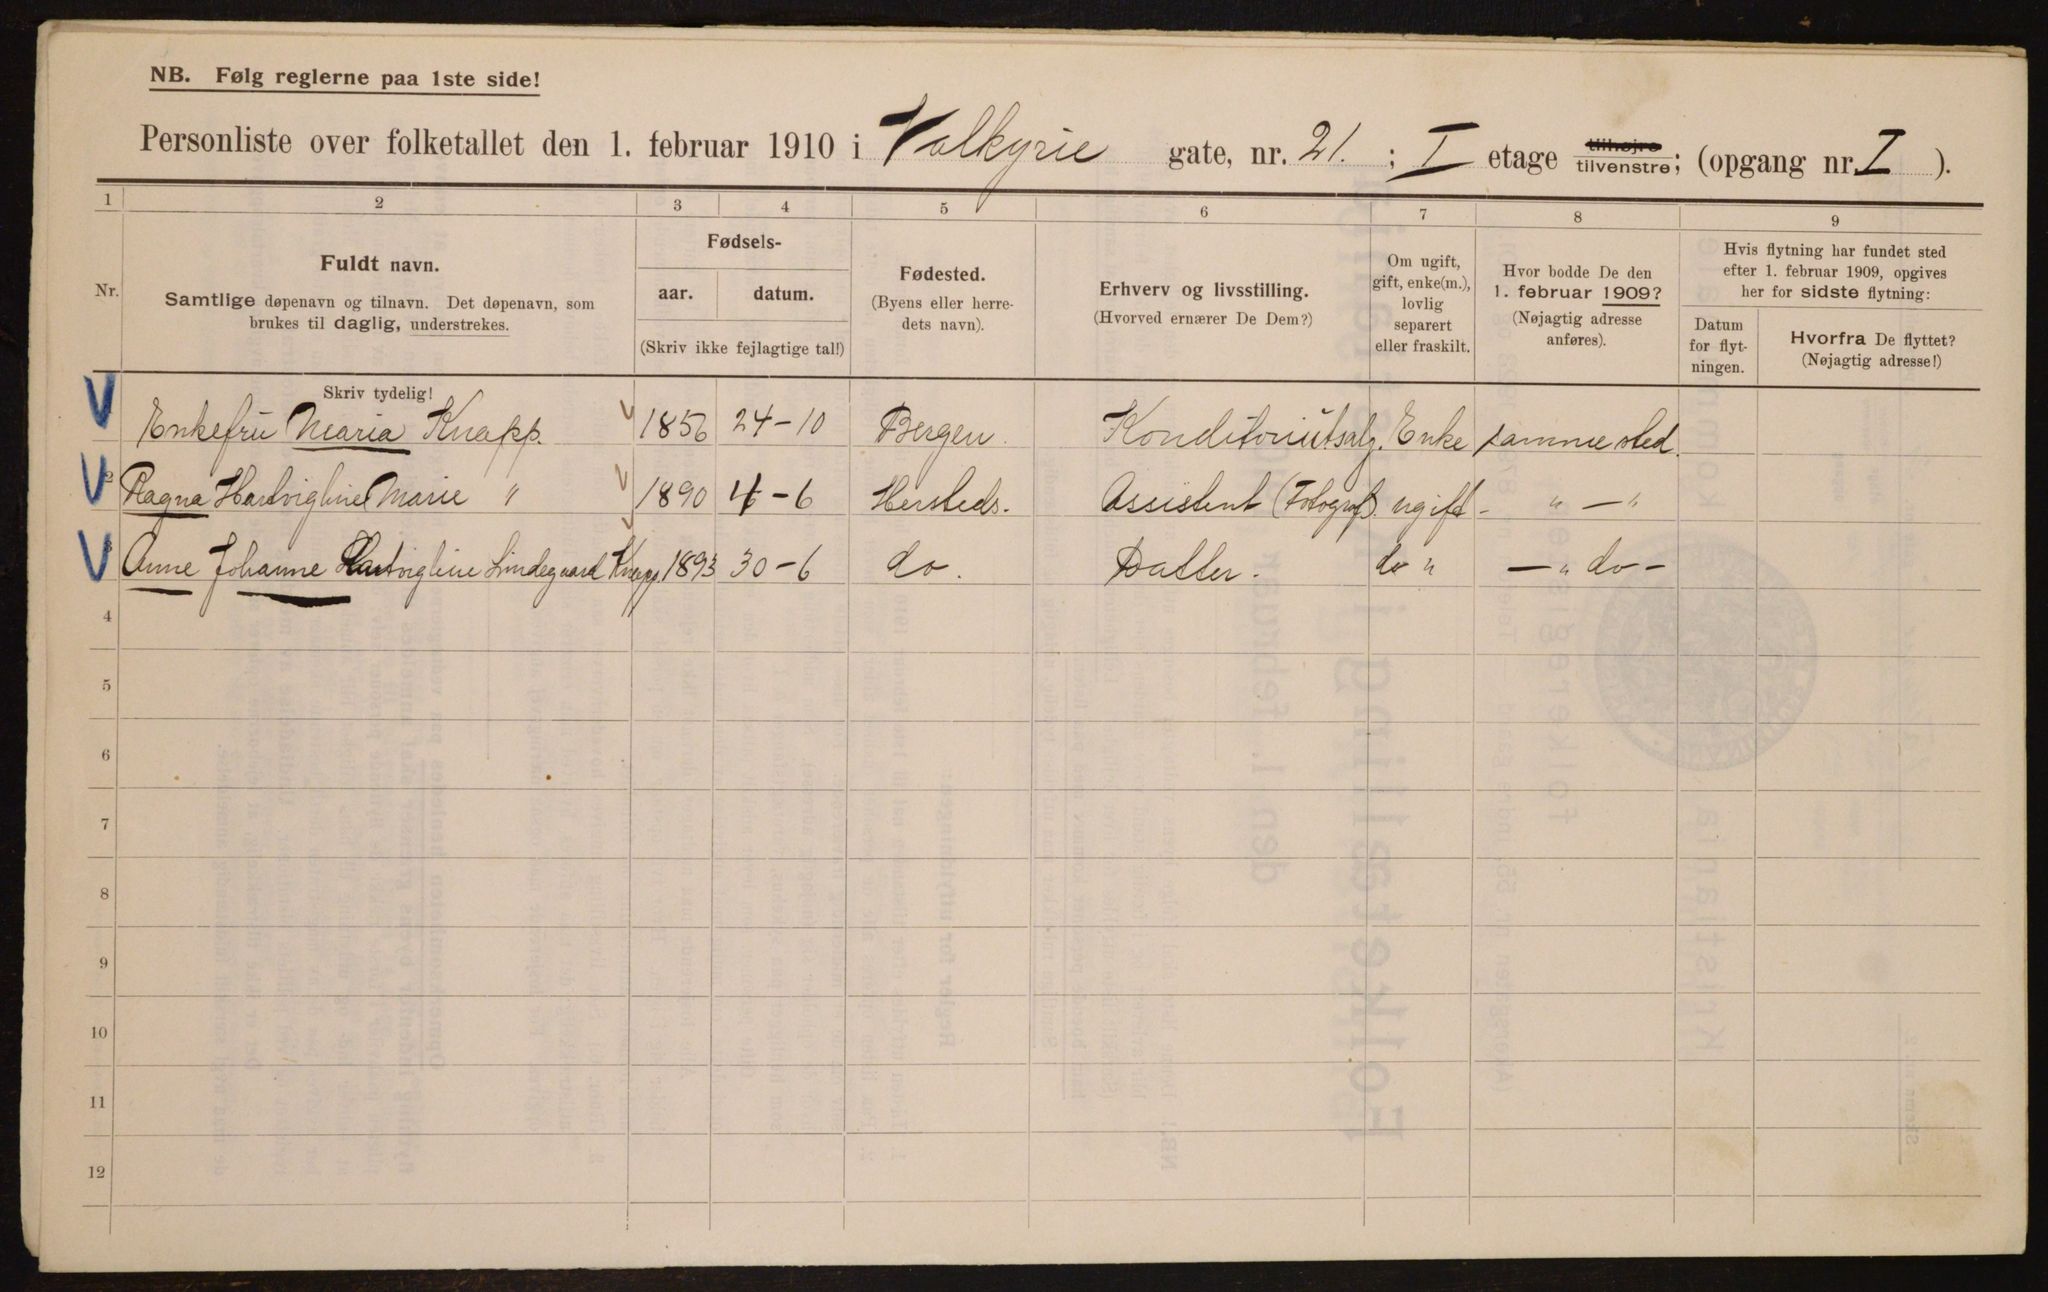 NB. Følg reglerne paa 1ste side!
Personliste over folketallet den 1. februar 1910 i Valkyrie gate, nr. 21. ; I etage tilhøjre tilvenstre; (opgang nr. I ).
1 2 3 4 5 6 7 8 9
Nr.
Fuldt navn.
Samtlige døpenavn og tilnavn. Det døpenavn, som
brukes til daglig, understrekes.
Fødsels-
aar. datum.
(Skriv ikke fejlagtige tal!)
Fødested.
(Byens eller herre-
dets navn).
Erhverv og livsstilling.
(Hvorved ernærer De Dem?)
Om ugift,
gift, enke(m.),
lovlig
separert
eller fraskilt.
Hvor bodde De den
1. februar 1909?
(Nøjagtig adresse
anføres).
Hvis flytning har fundet sted
efter 1. februar 1909, opgives
her for sidste flytning:
Datum
for flyt-
ningen.
Hvorfra De flyttet?
(Nøjagtig adresse!)
Skriv tydelig!
Enkefru Maria Knapp. 1856 24-10 Bergen. Konditoriutsalg. Enke samme sted.
2 Ragna Hartvigline Marie " 1890 4-6 Hersteds. Assistent (Fotograf). ugift - " - "
3 Anne Johanne Hartvigline Lindegaard Knapp 1893 30-6 do. Datter. do " - " do -
4
5
6
7
8
9
10
11
12